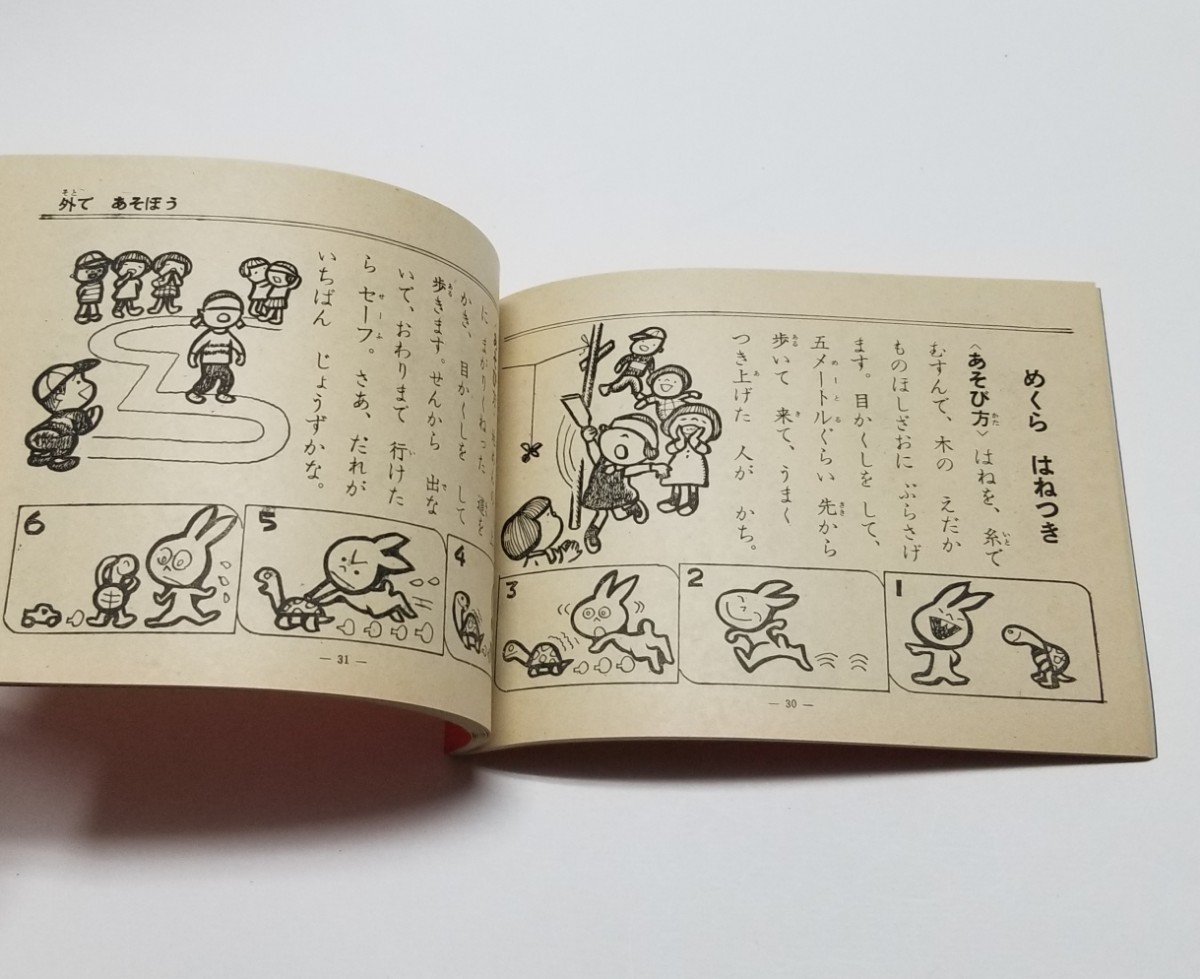 めくら はねつき
〈あそび方〉はねを、糸で
むすんで、木の えだか
ものほしざおに ぶらさげ
ます。目かくしを して、
五メートルぐらい 先から
歩いて 来て、うまく
つき上げた 人が かち。
1
2
3
— 30 —
外で あそぼう
に まがりくねった 道を
かき、目かくしを して
歩きます。せんから 出な
いで、おわりまで 行けた
ら セーフ。さあ、だれが
いちばん じょうずかな。
4
5
6
— 31 —